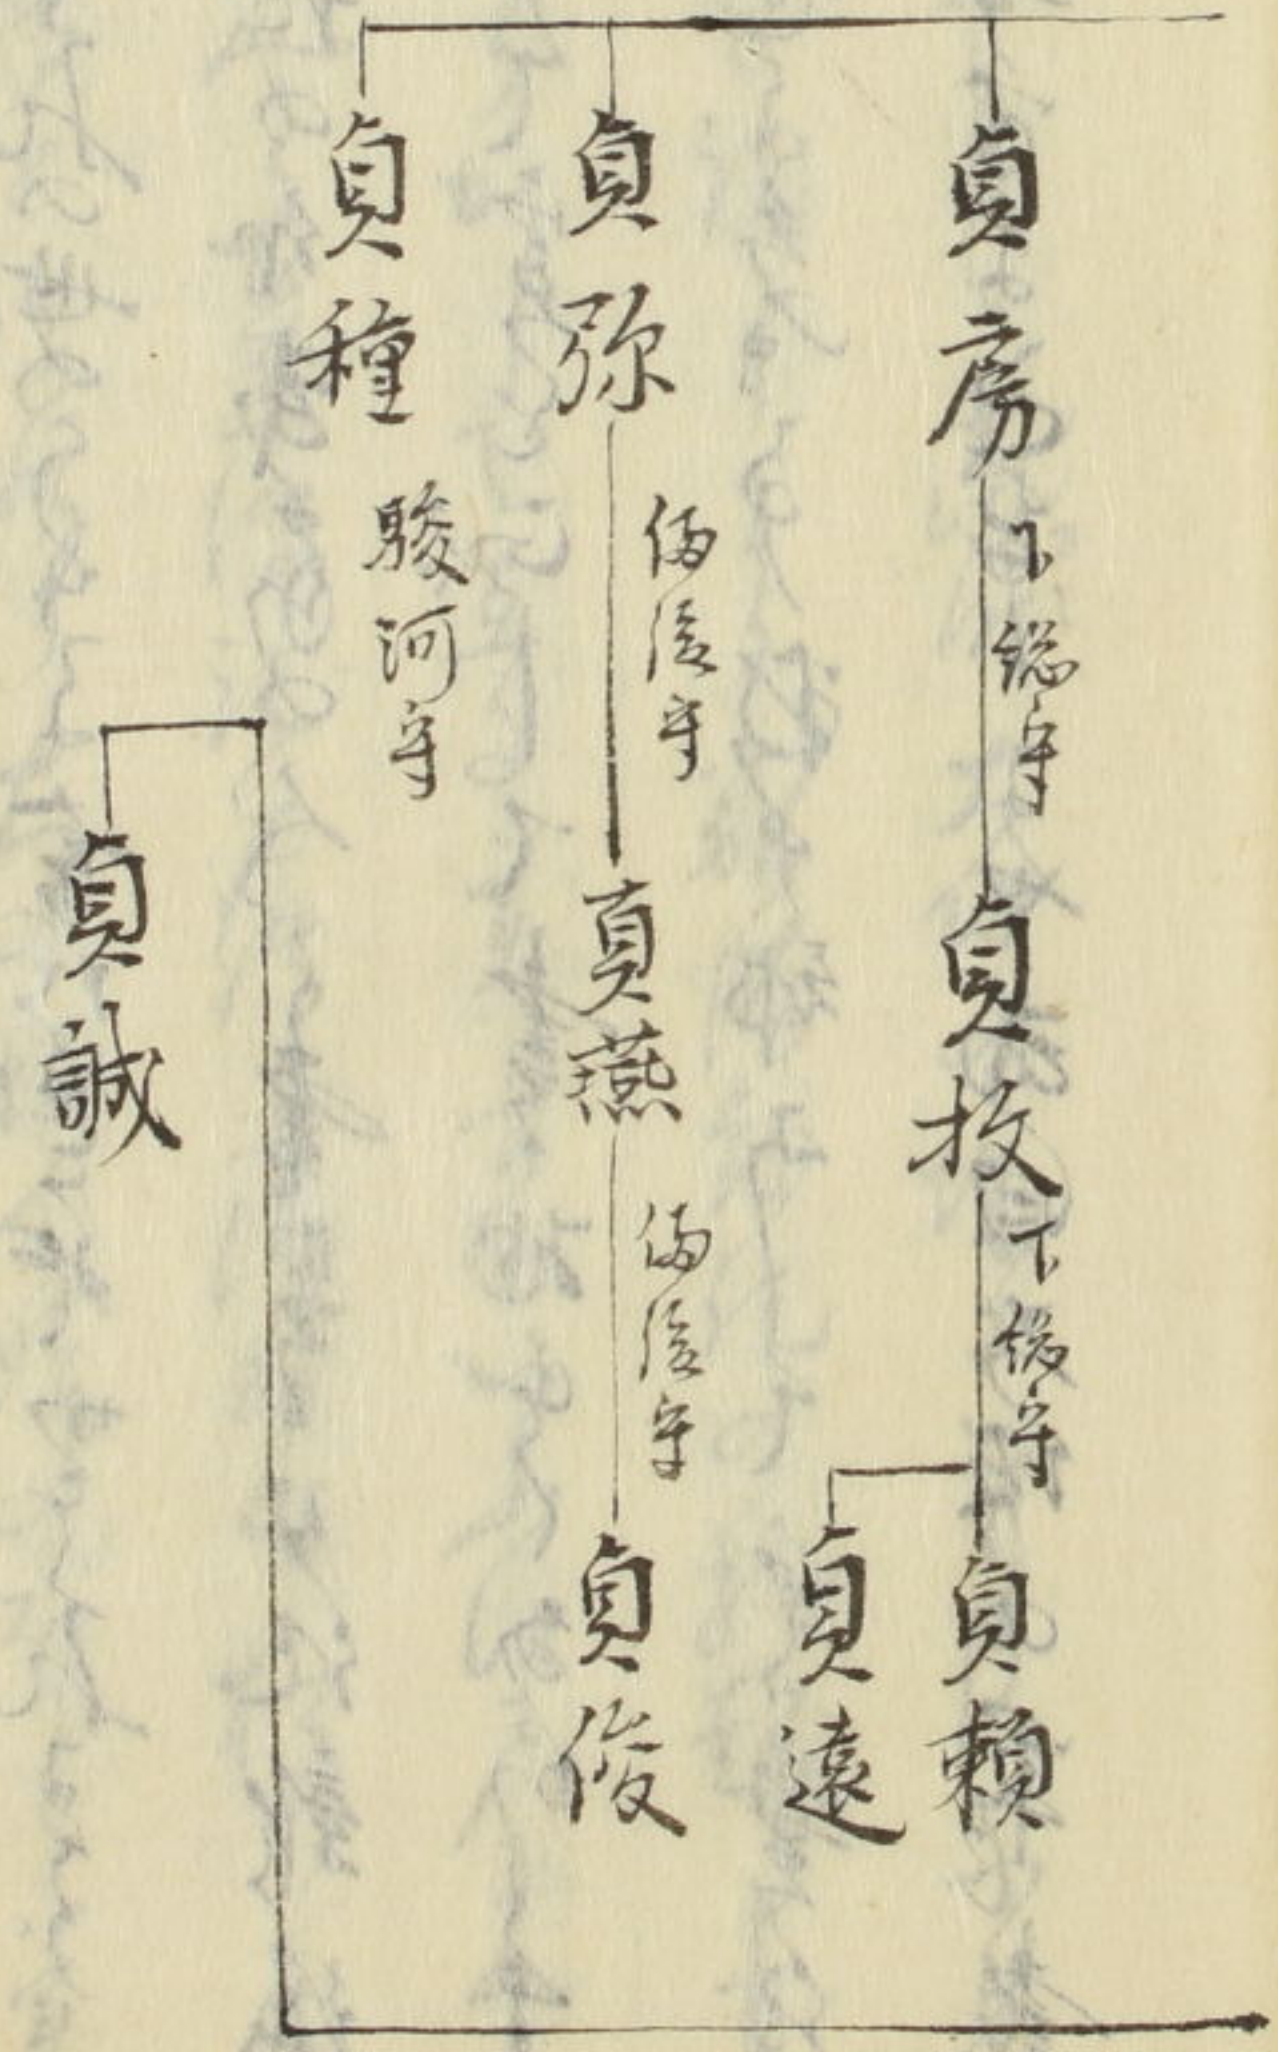 貞房
下総守
貞牧
下総守
貞頼
貞遠
貞弥
備後守
真燕
備後守
貞俊
貞種
駿河守
貞誠